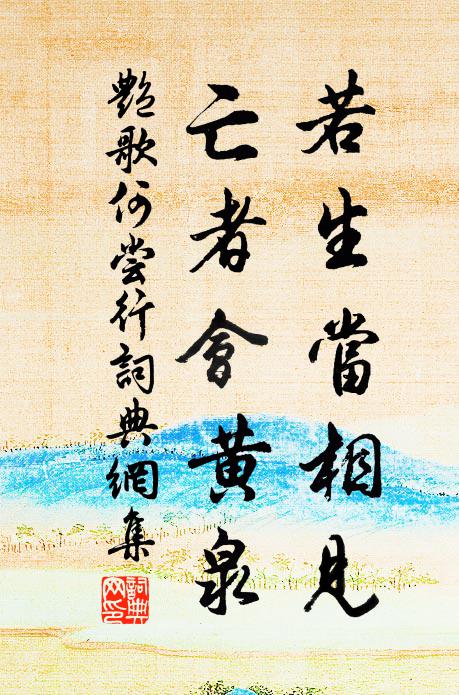 若生當相見
亡者會黃泉
艷歌何嘗行詞典網集
詞典